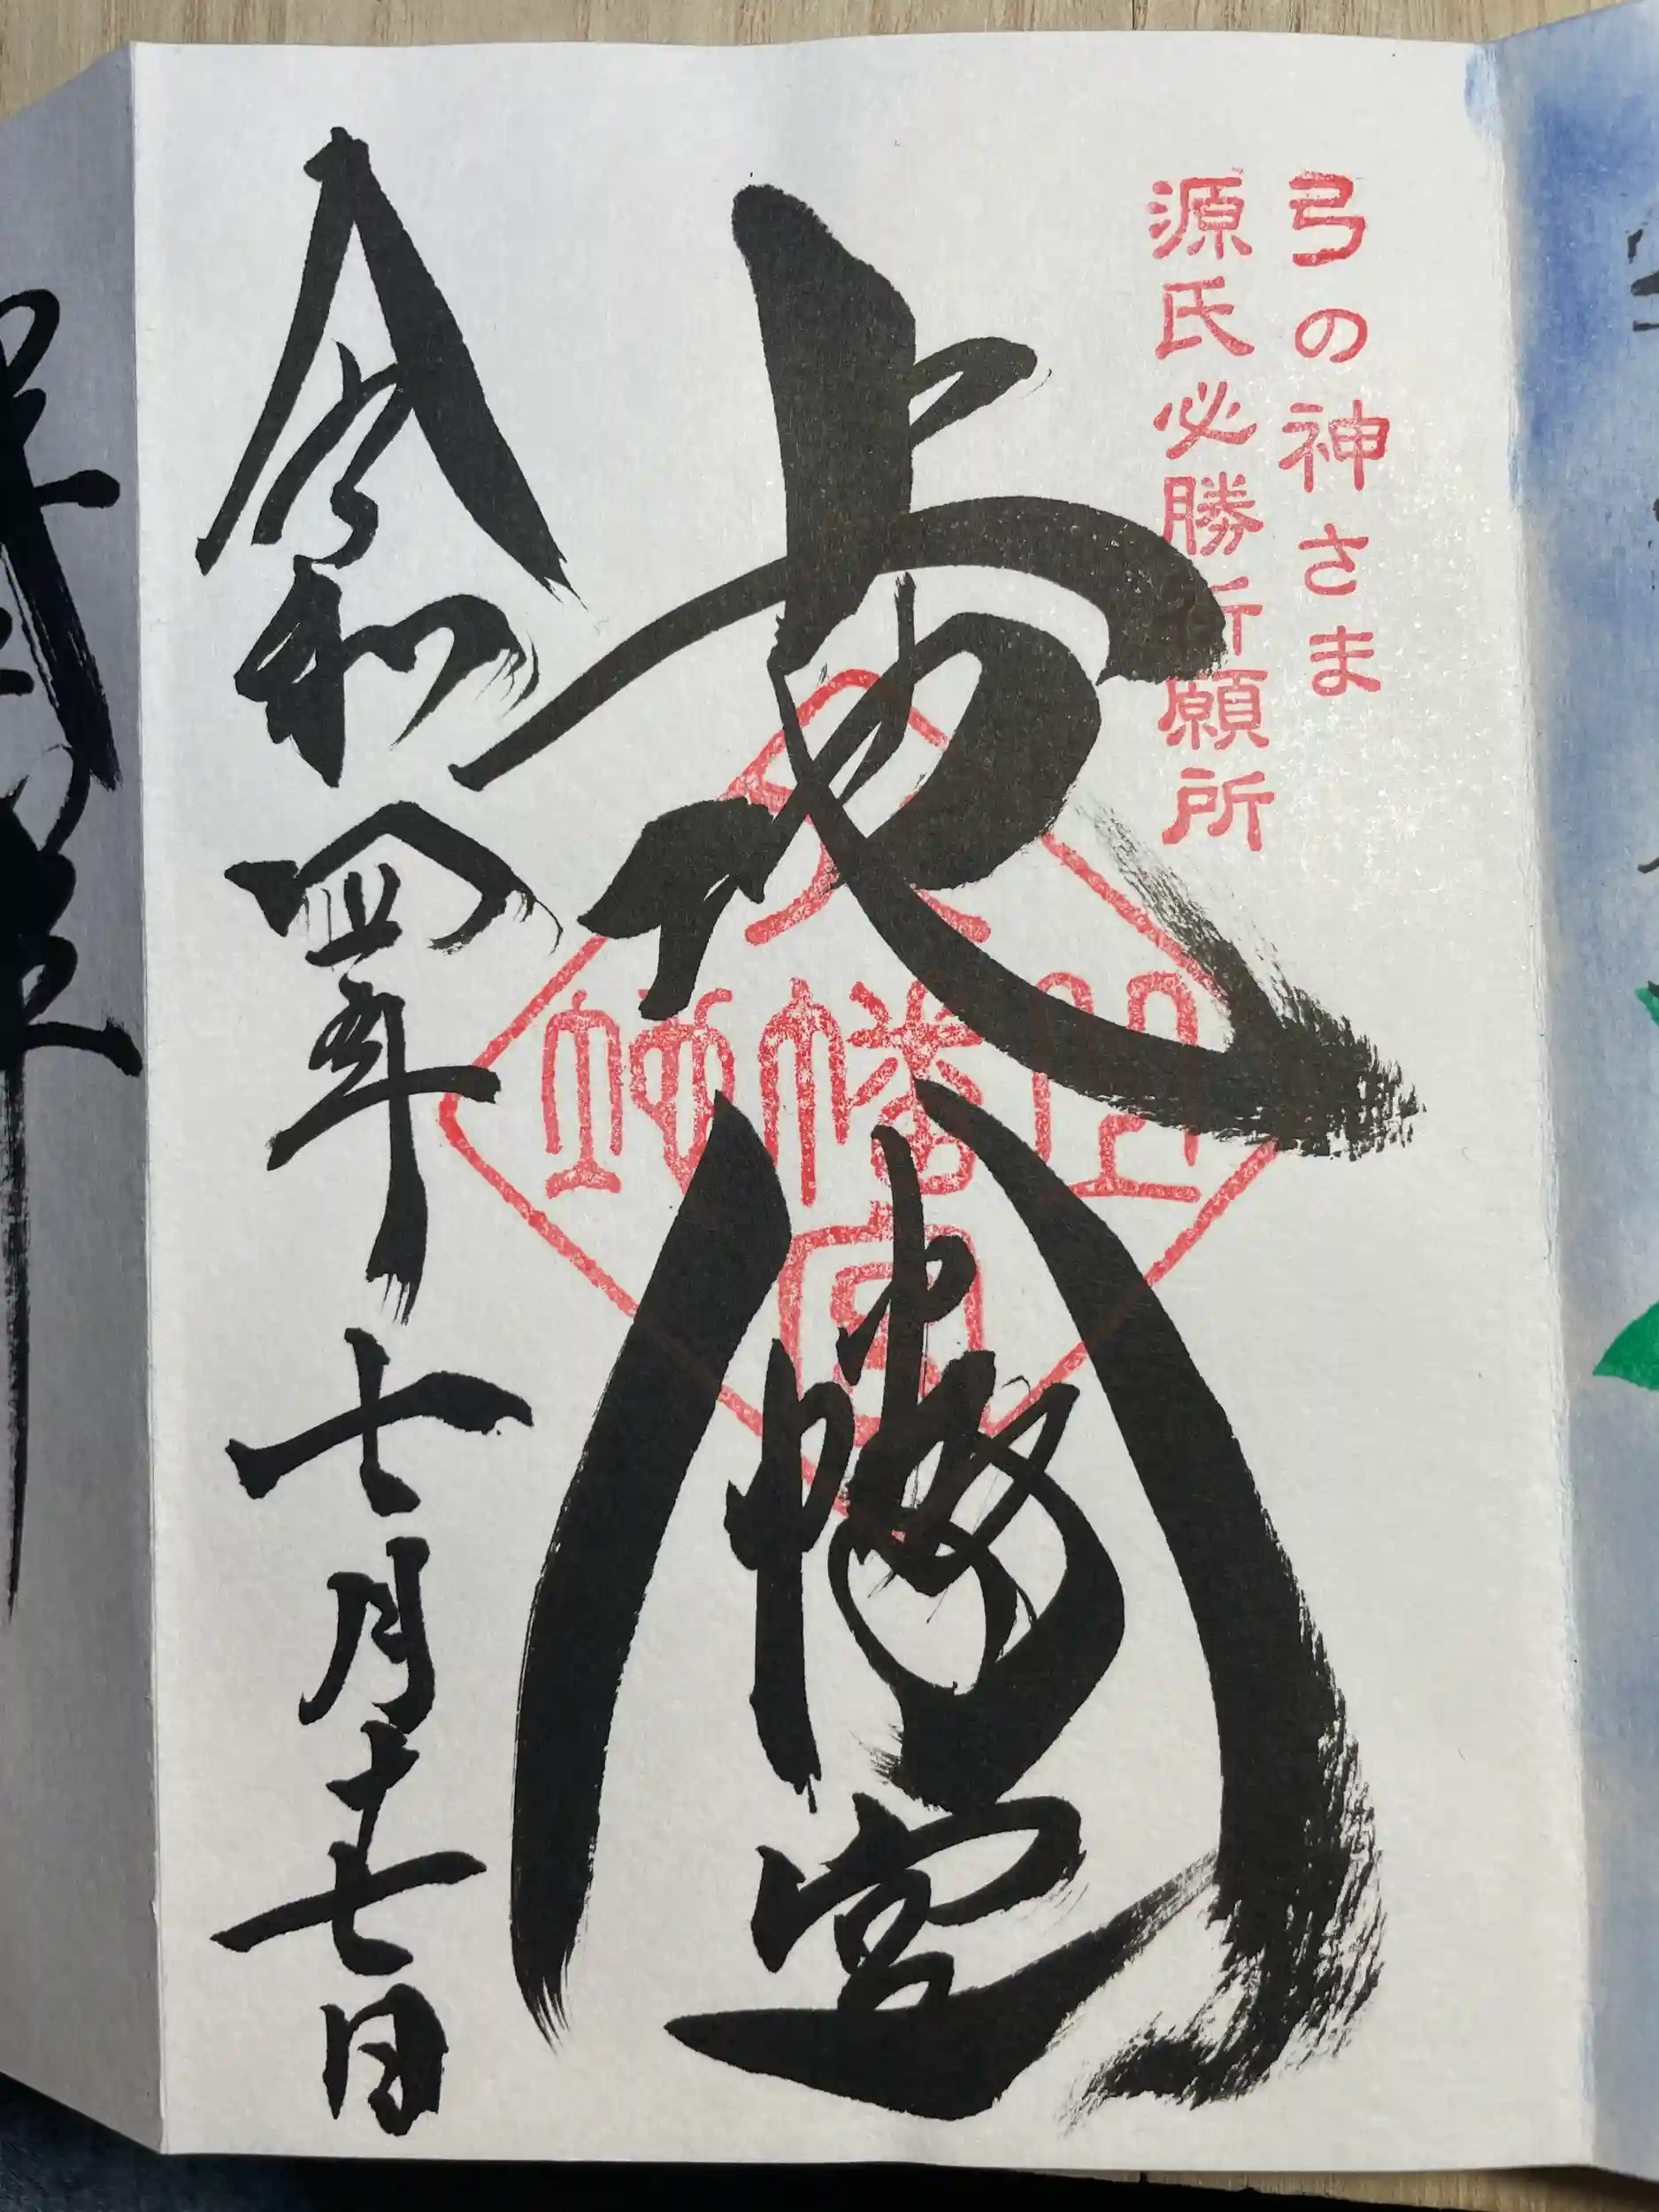 弓の神さま
源氏必勝祈願所
上地八幡宮
令和四年七月十七日